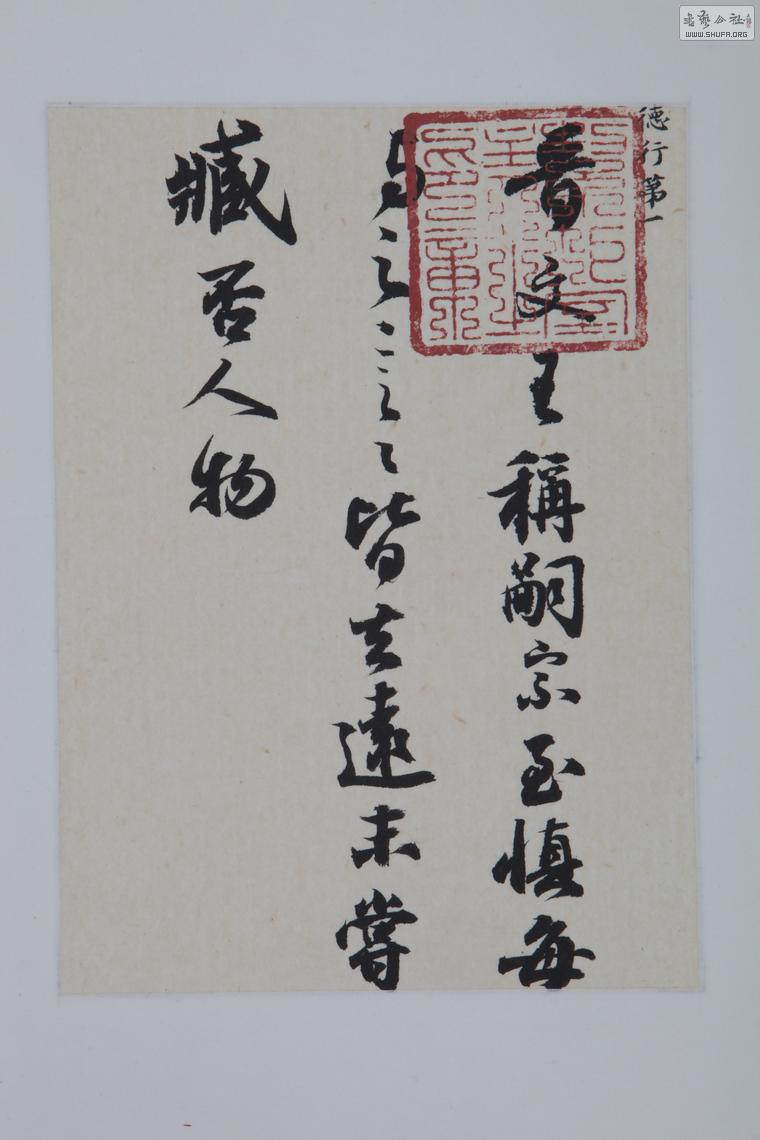 德行第一
晋文王稱嗣宗至慎每
与之言〻皆玄遠未嘗
臧否人物
書藝公社
WWW.SHUFA.ORG